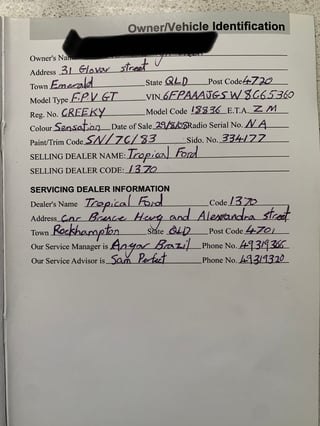 Owner/Vehicle Identification
Owner's Name
Address 31 Glover street
Town Emerald State QLD Post Code 4720
Model Type F.P.V GT VIN 6FPAAAJGSW8C65360
Reg. No. CREEKY Model Code 18836 E.T.A. ZM
Colour Sensation Date of Sale 29/8/08 Radio Serial No. NA
Paint/Trim Code SN/7C/83 Sido. No. 334177
SELLING DEALER NAME: Tropical Ford
SELLING DEALER CODE: 1370
SERVICING DEALER INFORMATION
Dealer's Name Tropical Ford Code 1370
Address Cnr Hwy and Alexandra street
Town Rockhampton State QLD Post Code 4701
Our Service Manager is Brazil Phone No. 49319366
Our Service Advisor is Sam Perfect Phone No. 49319320